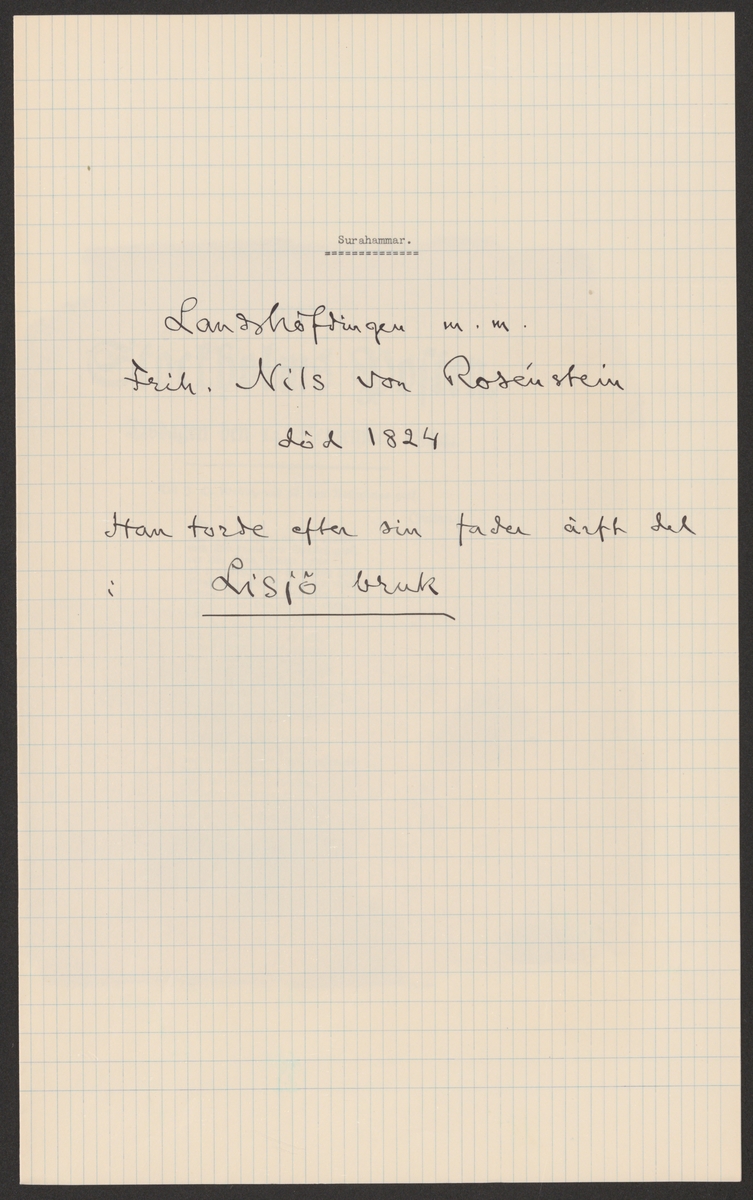 Surahammar.
==============
Landshöfdingen m.m.
Frih. Nils von Rosénstein
död 1824
Han torde efter sin fader ärft del
i Lisjö bruk